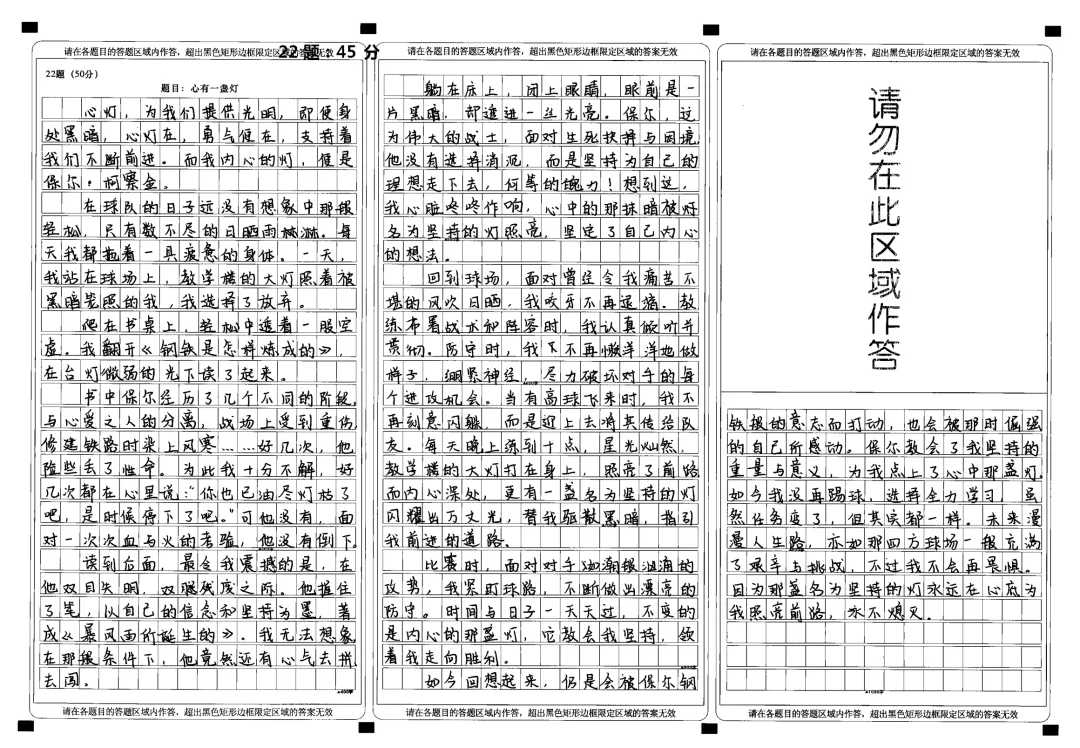 请在各题目的答题区域内作答，超出黑色矩形边框限定区域的答案无效
22题：45 分
22题（50分）
题目：心有一盏灯
心灯，为我们提供光明，即使身
处黑暗，心灯在，勇气便在，支持着
我们不断前进。而我内心的灯，便是
保尔·柯察金。
在球队的日子远没有想象中那般
轻松，只有数不尽的日晒雨淋淋。每
天我都拖着一具疲惫的身体。一天，
我站在球场上，教学楼的大灯照着被
黑暗笼照的我，我选择了放弃。
爬在书桌上，轻松中透着一股空
虚。我翻开《钢铁是怎样炼成的》，
在台灯微弱的光下读了起来。
书中保尔经历了几个不同的阶段，
与心爱之人的分离，战场上受到重伤
修建铁路时染上风寒……好几次，他
险些丢了性命。为此我十分不解，好
几次都在心里说：“你也已油尽灯枯了
吧，是时候停下了吧。”可他没有，面
对一次次血与火的考验，他没有倒下。
读到后面，最令我震撼的是，在
他双目失明，双腿残废之际。他握住
了笔，以自己的信念和坚持为墨，著
成《暴风雨所诞生的》。我无法想象
在那般条件下，他竟然还有心气去拼
去闯。
▲400字
请在各题目的答题区域内作答，超出黑色矩形边框限定区域的答案无效
请在各题目的答题区域内作答，超出黑色矩形边框限定区域的答案无效
躺在床上，闭上眼睛，眼前是一
片黑暗，却透进一丝光亮。保尔，这
为伟大的战士，面对生死抉择与困境
他没有选择消沉，而是坚持为自己的
理想走下去，何等的魄力！想到这，
我心脏咚咚作响，心中的那抹暗被好
名为坚持的灯照亮，坚定了自己内心
的想法。
回到球场，面对曾经令我痛苦不
堪的风吹日晒，我咬牙不再退缩。教
练布署战术和阵容时，我认真倾听并
贯彻。防守时，我不再懒洋洋地做
样子，绷紧神经，尽力破坏对手的每
▲600字
个进攻机会。当有高球飞来时，我不
再刻意闪躲，而是迎上去将其传给队
友。每天晚上练到十点，星光灿然，
教学楼的大灯打在身上，照亮了前路
而内心深处，更有一盏名为坚持的灯
闪耀出万丈光，替我驱散黑暗，指引
我前进的道路。
比赛时，面对对手如潮银汹涌的
攻势，我紧盯球路，不断做出漂亮的
防守。时间与日子一天天过，不变的
是内心的那盏灯，它教会我坚持，领
着我走向胜利。
▲800字
如今回想起来，仍是会被保尔钢
请在各题目的答题区域内作答，超出黑色矩形边框限定区域的答案无效
请在各题目的答题区域内作答，超出黑色矩形边框限定区域的答案无效
请勿在此区域作答
铁般的意志而打动，也会被那时倔强
的自己所感动。保尔教会了我坚持的
重量与意义，为我点上了心中那盏灯。
如今我没再踢球，选择全力学习，虽
然任务变了，但其实都一样。未来漫
漫人生路，亦如那四方球场一般充满
了艰辛与挑战，不过我不会再畏惧。
因为那盏名为坚持的灯永远在心底为
我照亮前路，永不熄灭。
▲1000字
请在各题目的答题区域内作答，超出黑色矩形边框限定区域的答案无效